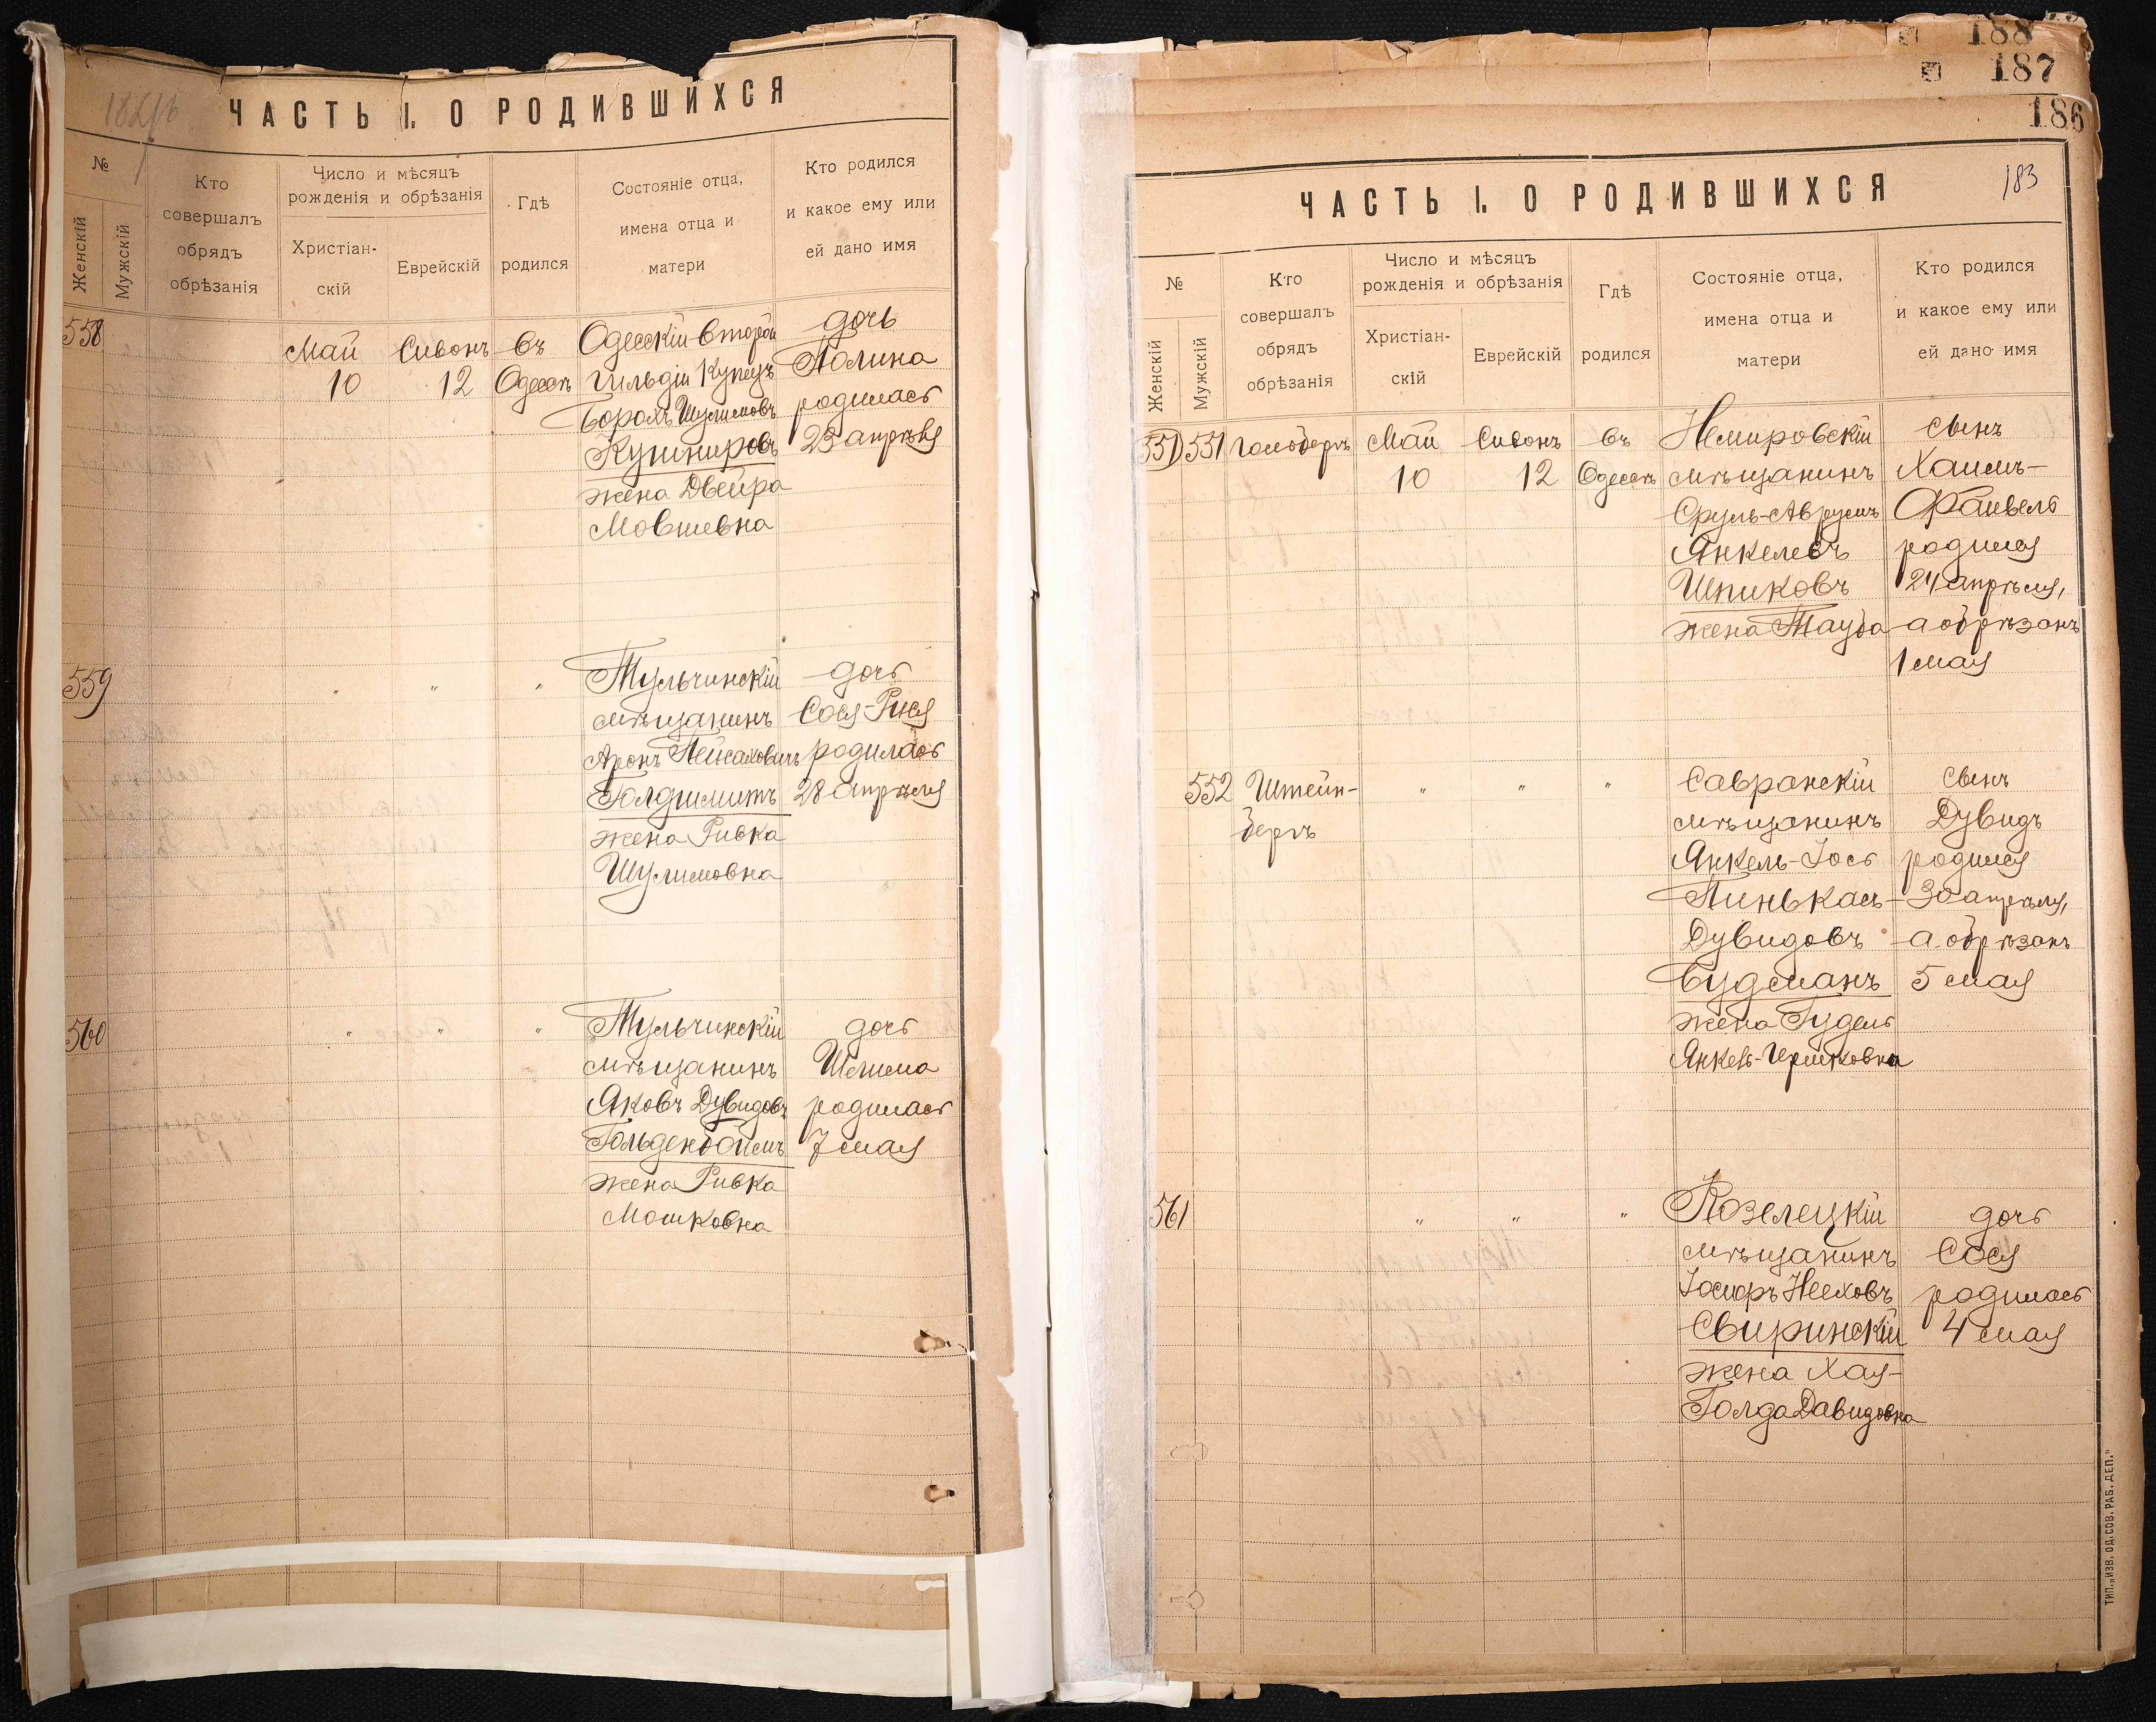 ЧАСТЬ I. О РОДИВШИХСЯ
№
Женскій
Мужскій
Кто
совершалъ
обрядъ
обрѣзанія
Число и мѣсяцъ
рожденія и обрѣзанія
Христіан-
скій
Еврейскій
Гдѣ
родился
Состояніе отца,
имена отца и
матери
Кто родился
и какое ему или
ей дано имя
558
Май
10
Сивонъ
12
въ
Одессѣ
Одесскій второй
гильдіи купецъ
Борохъ Шулимовъ
Кушнировъ
жена Двейра
Мовшевна
дочь
Полина
родилась
23 апрѣля
559
" " "
Тульчинскій
мѣщанинъ
Аронъ Пейсаховичъ
Голдшмитъ
жена Ривка
Шулимовна
дочь
Сося-Рися
родилась
28 апрѣля
560
" " "
Тульчинскій
мѣщанинъ
Яковъ Дувидовъ
Гольденбоймъ
жена Ривка
Мошковна
дочь
Шелима
родилась
7 мая
188
187
186
183
ЧАСТЬ I. О РОДИВШИХСЯ
№
Женскій
Мужскій
Кто
совершалъ
обрядъ
обрѣзанія
Число и мѣсяцъ
рожденія и обрѣзанія
Христіан-
скій
Еврейскій
Гдѣ
родился
Состояніе отца,
имена отца и
матери
Кто родился
и какое ему или
ей дано имя
551
551
Гольдбергъ
Май
10
Сивонъ
12
въ
Одессѣ
Немировскій
мѣщанинъ
Сруль-Аврумъ
Янкелевъ
Шпиковъ
жена Тауба
сынъ
Хаимъ-
Файвель
родился
24 апрѣля,
а обрѣзанъ
1 мая
552
Штейн-
бергъ
" " "
Савранскій
мѣщанинъ
Янкель-Іось
Пинькась-
Дувидовъ
Будманъ
жена Гудель
Янкель-Гершковна
сынъ
Дувидъ
родился
30 апрѣля,
а обрѣзанъ
5 мая
561
" " "
Козелецкій
мѣщанинъ
Іосифъ Нееховъ
Свиринскій
жена Хая-
Голда Давидовна
дочь
Сося
родилась
4 мая
ТИП. „ИЗВ. ОД. СОВ. РАБ. ДЕП."